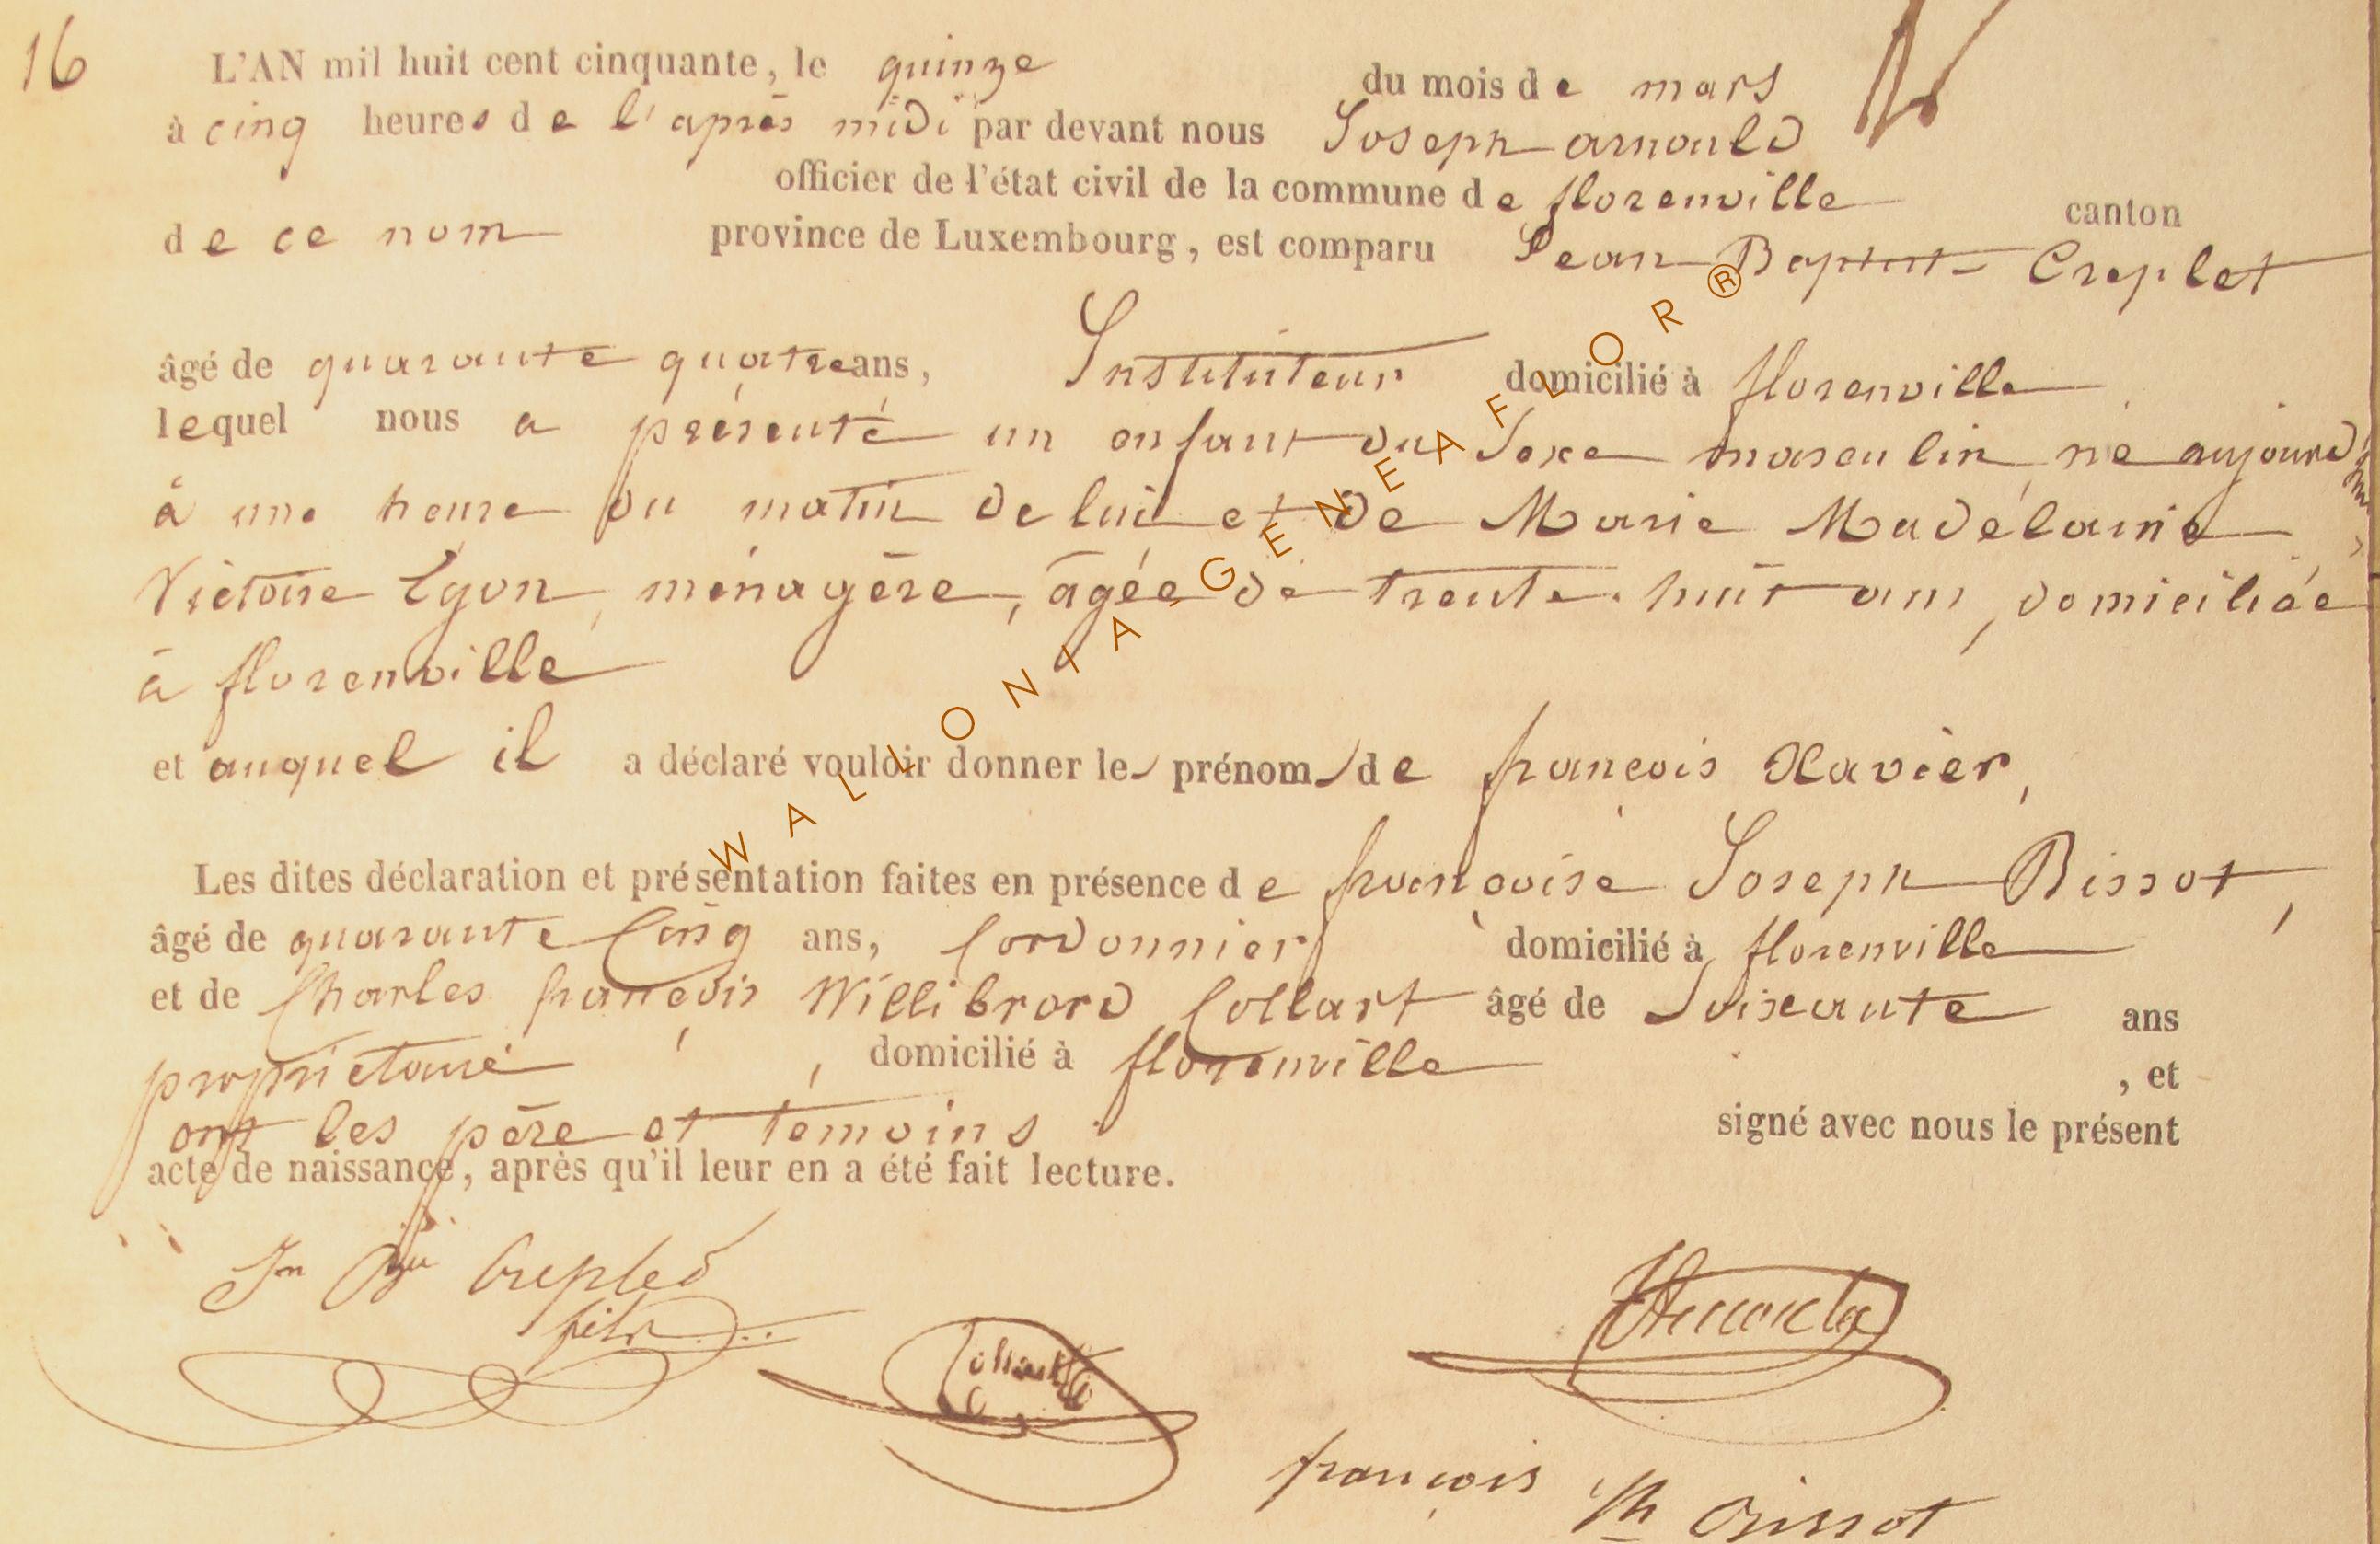 16
L'AN mil huit cent cinquante, le quinze du mois de mars
à cinq heures de l'après midi par devant nous Joseph arnould
officier de l'état civil de la commune de florenville canton
de ce nom province de Luxembourg, est comparu Jean Baptiste Creplet
âgé de quarante quatre ans, Instituteur domicilié à florenville
lequel nous a présenté un enfant du Sexe masculin né aujourd'hui
à une heure du matin de lui et de Marie Madélaine
Victoire Lyon, ménagère, âgée de trente huit ans, domiciliée
à florenville
et auquel il a déclaré vouloir donner les prénoms de francois Xavier,
Les dites déclaration et présentation faites en présence de francoise Joseph Bissot,
âgé de quarante Cinq ans, Cordonnier domicilié à florenville
et de Charles francois Willibrord Collart âgé de Soixante ans
propriétaire, domicilié à florenville, et
ont les père et témoins signé avec nous le présent
acte de naissance, après qu'il leur en a été fait lecture.
Jn Bte Creplet
fils
Collart
françois Jh Bissot
WALLONIA GENEAFLOR®